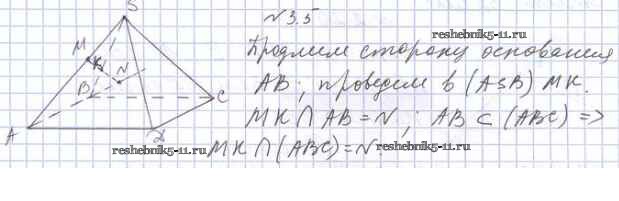 S
N 3.5
reshebnik5-11.ru
Продлим сторону основания
M
K
N
B
AB; проведем в (ASB) MK.
C
MK ∩ AB = N; AB ⊂ (ABC) =>
A
D
reshebnik5-11.ru
MK ∩ (ABC) = N.
reshebnik5-11.ru